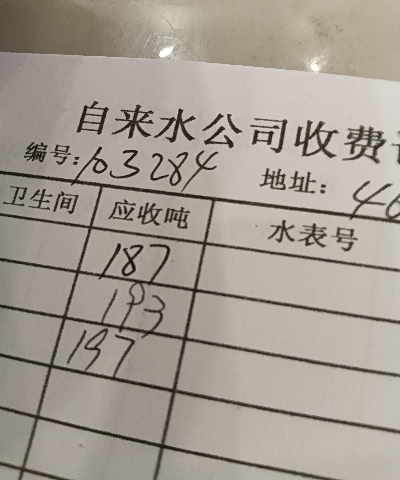 自来水公司收费
编号:103284 地址: 46
卫生间 应收吨 水表号
187
193
197